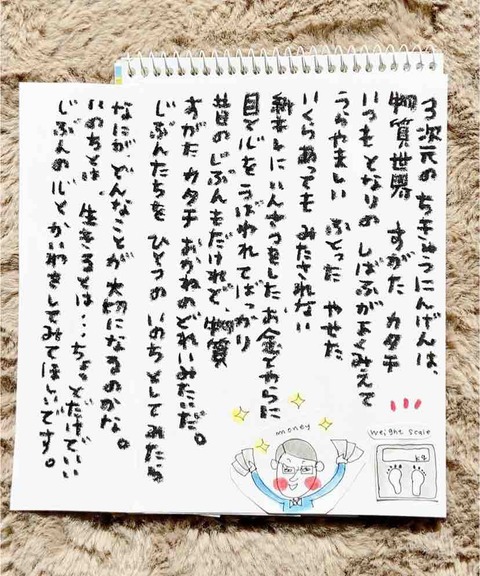 3次元の ちきゅうにんげんは、
物質世界 すがた カタチ
いつも となりの しばふが よくみえて
うらやましい ふとった やせた
いくらあっても みたされない
新きしにいんさつをした、お金とやらに
目と心を うばわれてばっかり
昔の じぶんもだけれど、物質
すがた カタチ おかねの どれいみたいだ。
じぶんたちを ひとつの いのちとして みたら
なにが、どんなことが 大切になるのかな。
いのちとは 生きるとは・・ちょっとだけでいい
じぶんの 心と かいわをしてみてほしいです。
money
weight scale
kg